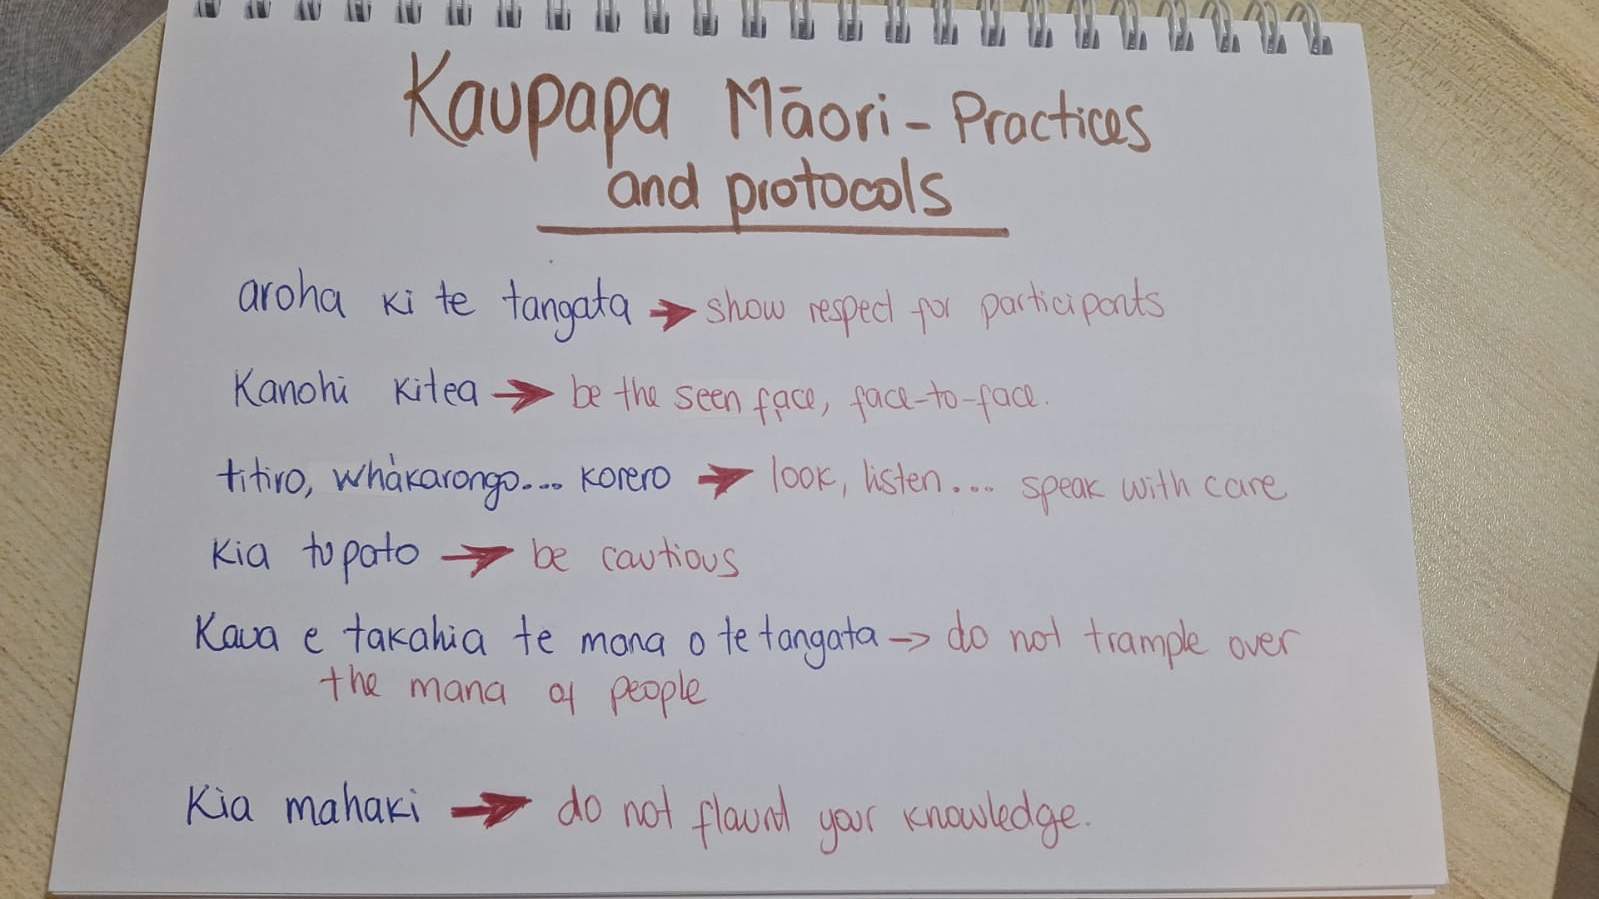 Kaupapa Māori - Practices
and protocols
aroha ki te tangata → show respect for participants
Kanohi kitea → be the seen face, face-to-face.
titiro, whakarongo... korero → look, listen... speak with care
Kia tupato → be cautious
Kaua e takahia te mana o te tangata → do not trample over
the mana of people
Kia mahaki → do not flaunt your knowledge.